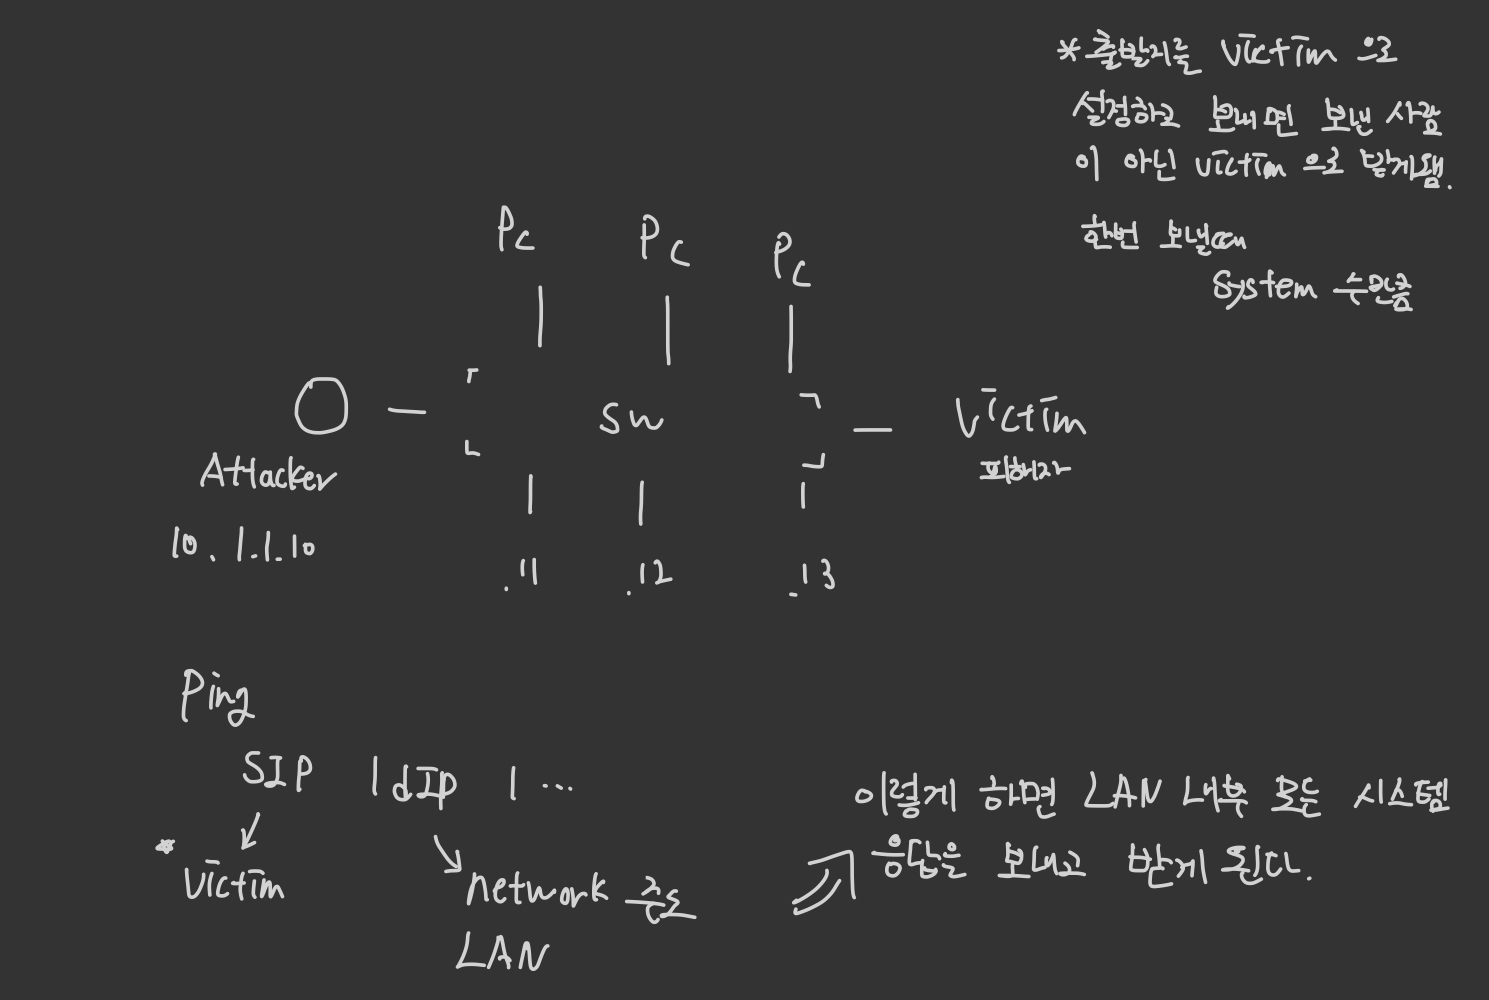 *출발지를 victim 으로
설정하고 보내면 보낸 사람
이 아닌 victim 으로 받게됌.
한번 보낼때
System 수만큼
PC PC PC
SW
Attacker
victim
피해자
10.1.1.10
.11 .12 .13
Ping
SIP | dIP | ...
* victim
network 주소
LAN
이렇게 하면 LAN 내부 모든 시스템
응답을 보내고 받게 된다.